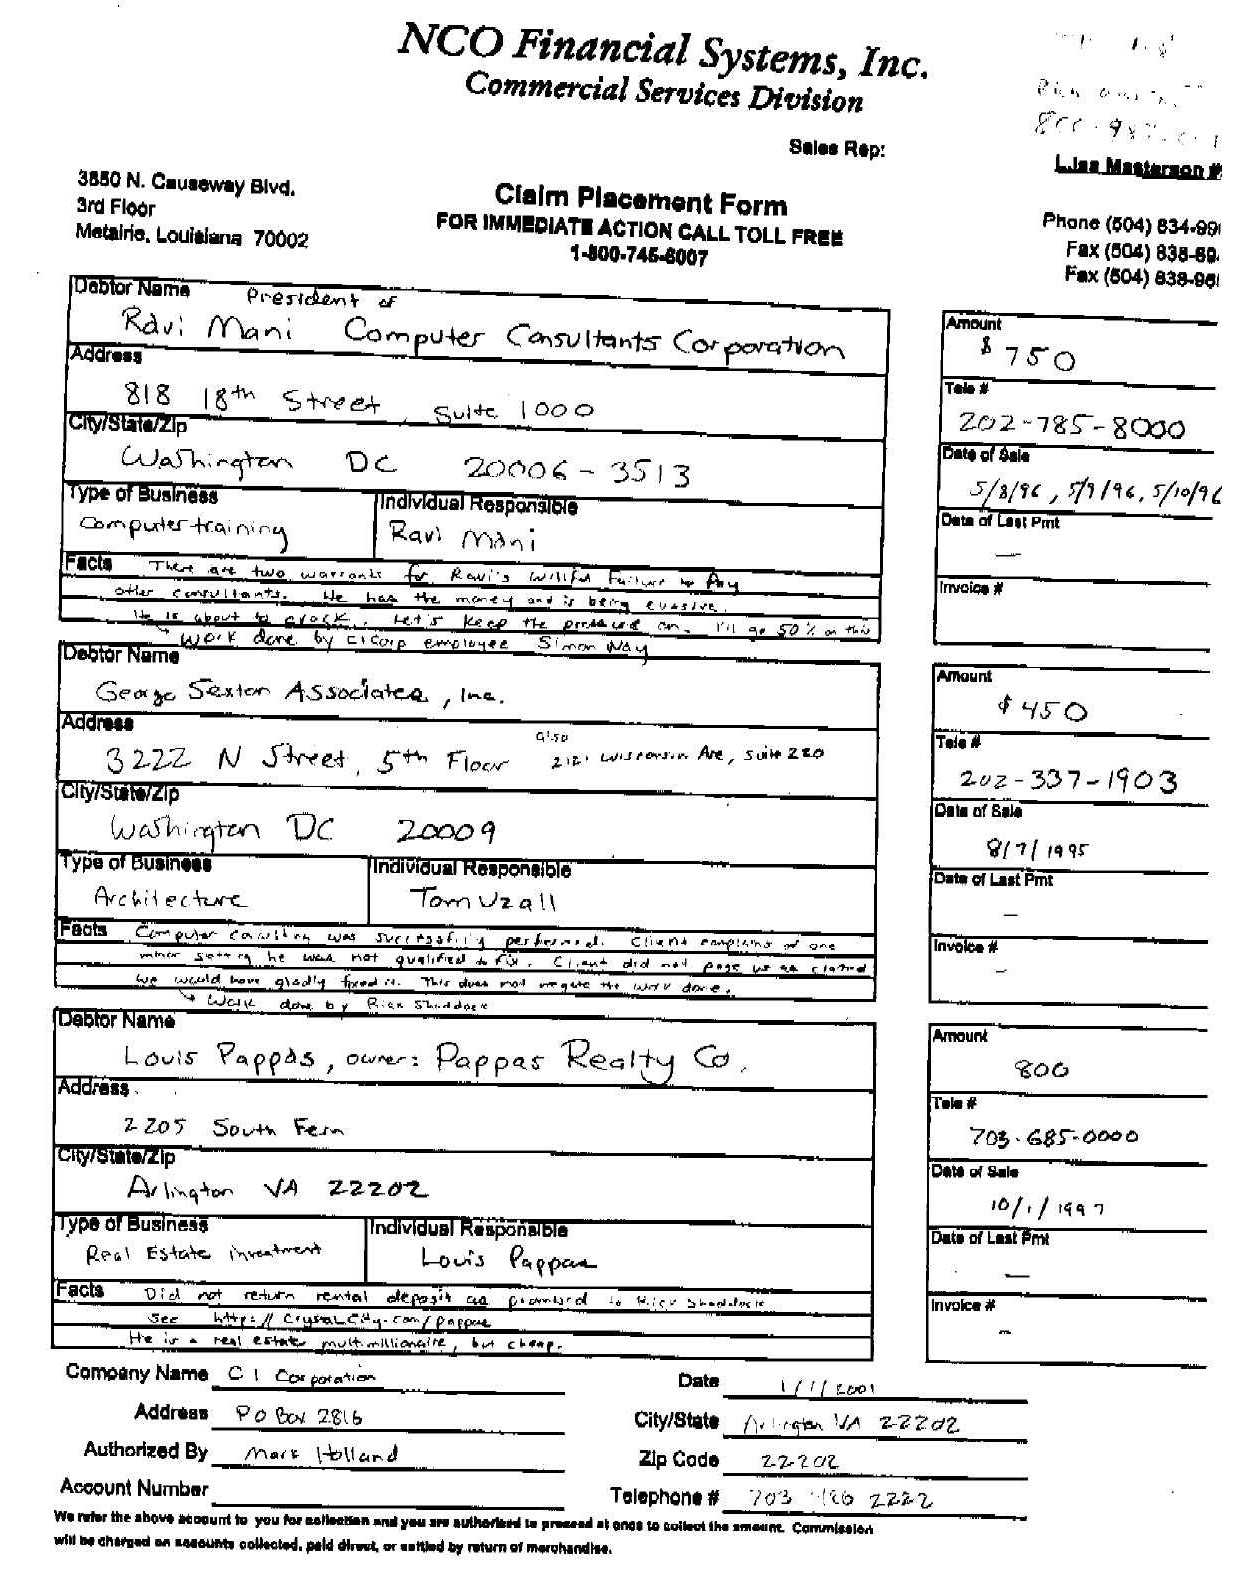 NCO Financial Systems, Inc.
Commercial Services Division
Sales Rep:
Lisa Masterson #
3850 N. Causeway Blvd.
3rd Floor
Metairie, Louisiana 70002
Claim Placement Form
FOR IMMEDIATE ACTION CALL TOLL FREE
1-800-745-6007
Phone (504) 834-99
Fax (504) 838-
Fax (504) 838-
Debtor Name President of
Ravi Mani Computer Consultants Corporation
Amount
$ 750
Address
818 18th Street, Suite 1000
Tele #
202-785-8000
City/State/Zip
Washington DC 20006-3513
Date of Sale
5/8/96, 5/9/96, 5/10/96
Type of Business
Computer training
Individual Responsible
Ravi Mani
Date of Last Pmt
—
Facts There are two warrants for Ravi's Willful Failure to Pay
other consultants. He has the money and is being evasive.
He is about to crack. Let's keep the pressure on. I'll go 50% on this
Work done by CI Corp employee Simon Way
Invoice #
Debtor Name
George Sexton Associates, Inc.
Amount
$ 450
Address
3222 N Street, 5th Floor also 2121 Wisconsin Ave, Suite 220
Tele #
202-337-1903
City/State/Zip
Washington DC 20009
Date of Sale
8/7/1995
Type of Business
Architecture
Individual Responsible
Tom Uzall
Date of Last Pmt
—
Facts Computer consulting was successfully performed. Client complains of one
minor setting he was not qualified to fix. Client did not page us as claimed
We would have gladly fixed it. This does not negate the work done.
Work done by Rick Shaddock
Invoice #
—
Debtor Name
Louis Pappas, owner: Pappas Realty Co.
Amount
800
Address
2205 South Fern
Tele #
703-685-0000
City/State/Zip
Arlington VA 22202
Date of Sale
10/1/1997
Type of Business
Real Estate investment
Individual Responsible
Louis Pappas
Date of Last Pmt
—
Facts Did not return rental deposit as promised to Rick Shaddock
See http://CrystalCity.com/pappas
He is a real estate multimillionaire, but cheap.
Invoice #
—
Company Name CI Corporation
Date 1/1/2001
Address PO Box 2816
City/State Arlington VA 22202
Authorized By Mark Holland
Zip Code 22202
Account Number
Telephone # 703 486 2222
We refer the above account to you for collection and you are authorized to proceed at once to collect the amount. Commission
will be charged on accounts collected, paid direct, or settled by return of merchandise.